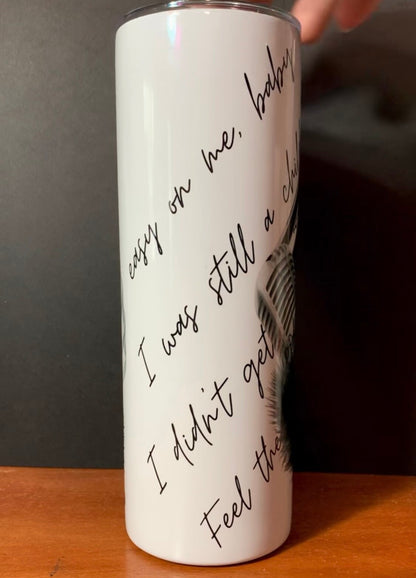 easy on me, baby
I was still a
I didn't get
Feel the